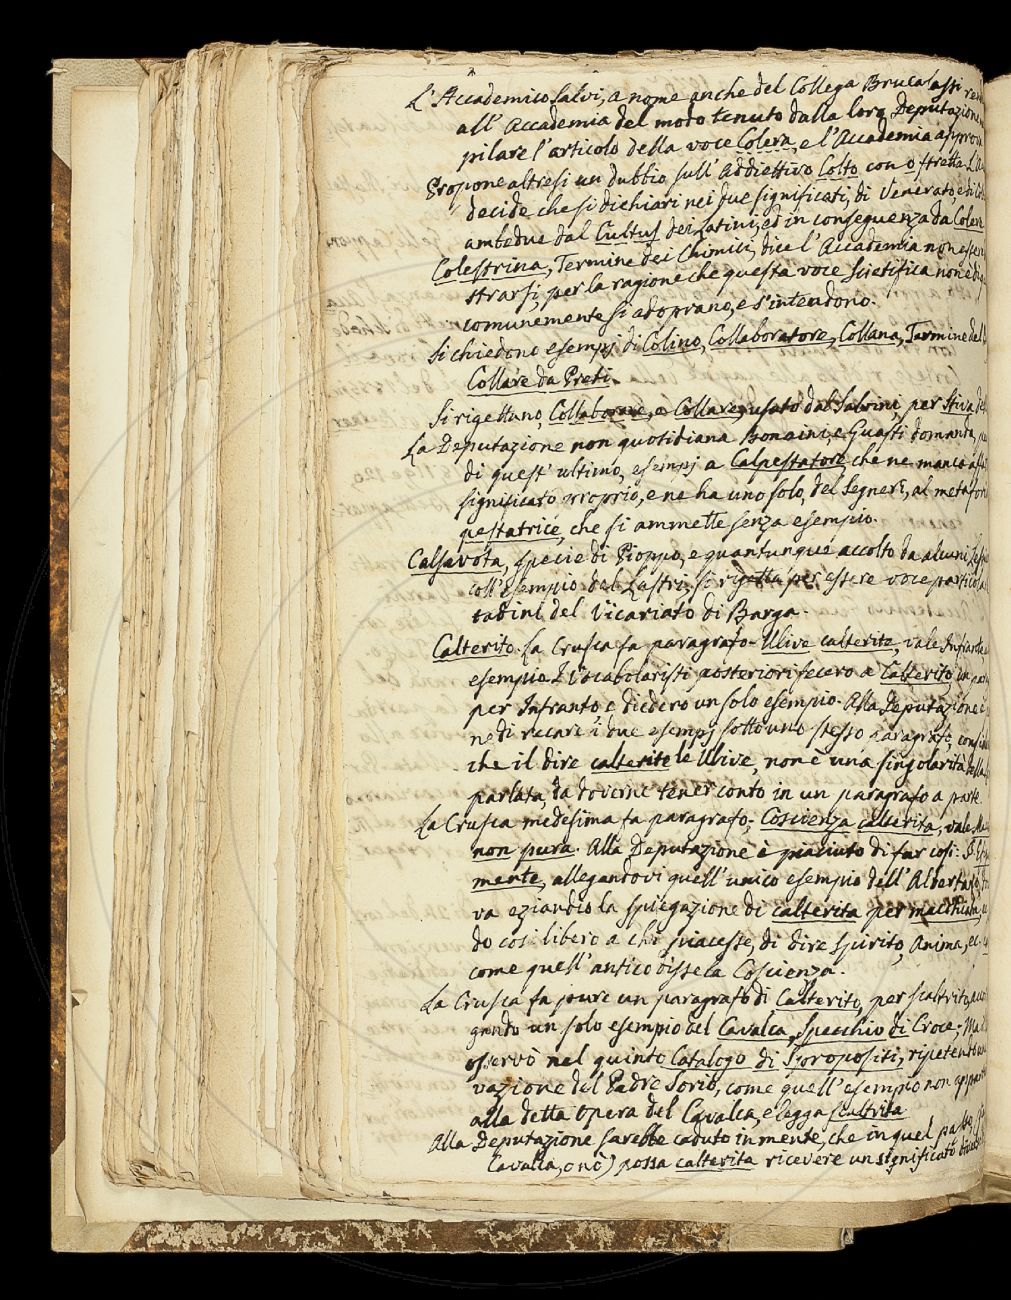 L'Accademico Salvi, a nome anche del Collega Brucalassi
all'Accademia del modo tenuto dalla loro Deputazione
pilare l'articolo della voce Colera, e l'Accademia approva
Propone altresì un dubbio sull'Addiettivo Colto con o stretta. L'
decide che si dichiari nei due significati, di Venerato, e di
ambedue dal Cultus dei Latini, ed in conseguenza da Colere
Colestrina, Termine dei Chimici, dice l'Accademia non
strarsi, per la ragione che questa voce scietifica non è di
comunemente si adoprano, e s'intendono.
Si chiedono esempj di Colino, Collaboratore, Collana, Termine
Collare da Preti.
Si rigettano, Collaborare, e Collare, usato dal Salvini, per Stiva
La Deputazione non quotidiana Bonaini, e Guasti domanda,
di quest'ultimo, esempj a Calpestatore che ne manca
significato proprio, e ne ha uno solo, del Segneri, al
pestatrice, che si ammette senza esempio.
Calsavota, specie di Pioppo, e quantunque accolto da alcuni
coll'esempio del Lastri, si rigetta per essere voce
tadini del Vicariato di Barga.
Calterito. La Crusca fa paragrafo. Ulive calterite, vale Infrante,
esempio. I Vocabolaristi posteriori fecero a Calterito un
per Infranto e diedero un solo esempio. Alla Deputazione è
ne di recare i due esempj sotto uno stesso paragrafo,
che il dire calterite le Ulive, non è una singolarità della
parlata, da doverne tener conto in un paragrafo a parte.
La Crusca medesima fa paragrafo; Coscienza calterita, vale
non pura. Alla Deputazione è piaciuto di far così:
mente, allegandovi quell'unico esempio dell'Albertano,
va eziandio la spiegazione di calterita per macchiata,
do così libero a chi piacesse, di dire Spirito, Anima, ec.
come quell'antico disse la Coscienza.
La Crusca fa pure un paragrafo di Calterito, per scaltrito,
gando un solo esempio del Cavalca, Specchio di Croce;
osservò nel quinto Catalogo di Spropositi, ripetendo
vazione del Padre Sorio, come quell'esempio non
alla detta Opera del Cavalca, e legga scaltrita.
Alla Deputazione sarebbe caduto in mente, che in quel passo
Cavalca, o nò) possa calterita ricevere un significato